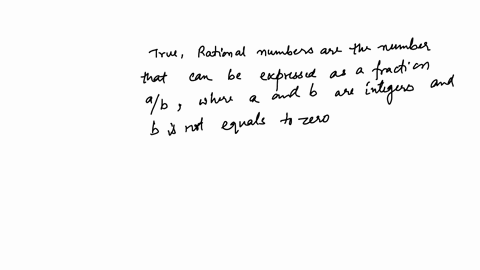 True, Rational numbers are the number
that can be expressed as a fraction
a/b, where a and b are integers and
b is not equals to zero